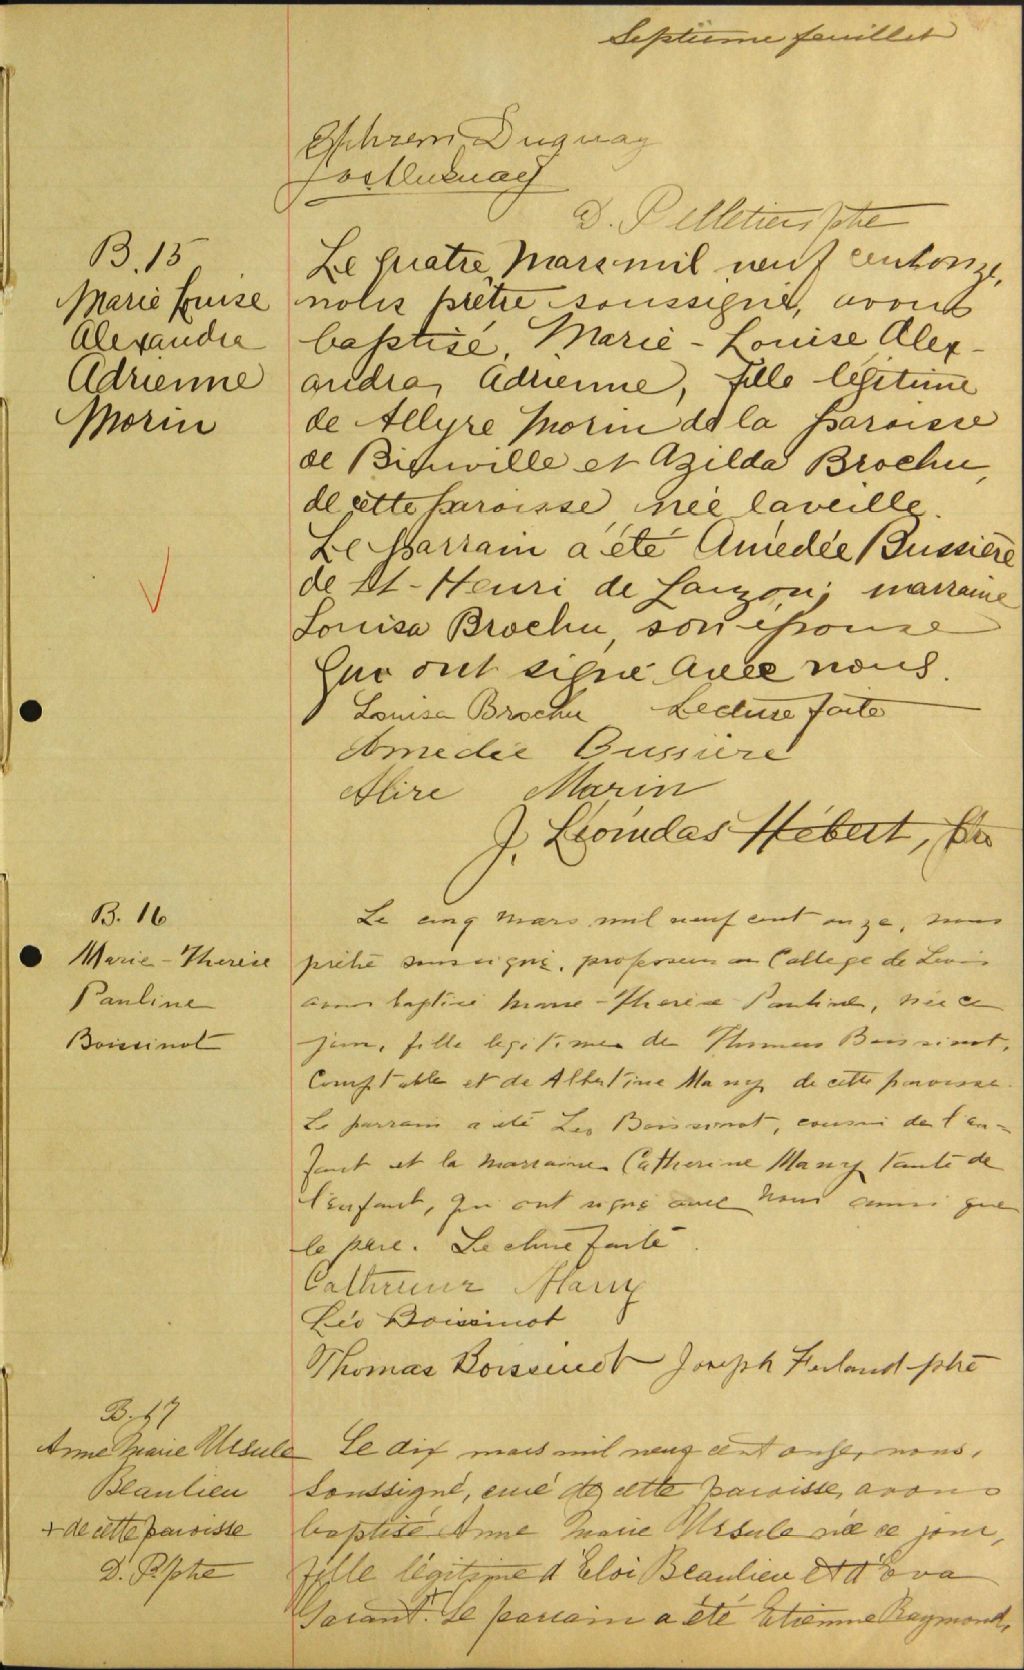 Septième feuillet
Ephrem Duguay
Jos Duguay
D. Pelletier ptre
B. 15
Marie Louise
Alexandra
Adrienne
Morin
Le quatre Mars mil neuf cent onze,
nous prêtre soussigné, avons
baptisé, Marie-Louise Alex-
andra, Adrienne, fille légitime
de Allyre Morin de la paroisse
de Bienville et Azilda Brochu,
de cette paroisse née la veille.
Le parrain a été Amédée Bussière
de St-Henri de Lauzon; marraine
Louisa Brochu, son épouse
qui ont signé avec nous.
Louisa Brochu Lecture faite
Amedée Bussière
Alire Marin
J. Léonidas Hébert, ptre
B. 16
Marie-Therèse
Pauline
Boissinot
Le cinq mars mil neuf cent onze, nous
prêtre soussigné, professeur au College de Levis
avons baptisé Marie-Therèse Pauline, née ce
jour, fille legitime de Thomas Boissinot,
Comptable et de Albertine Many de cette paroisse.
Le parrain a été Léo Boissinot, cousin de l'en-
fant et la marraine Catherine Many tante de
l'enfant, qui ont signé avec nous ainsi que
le père. Lecture faite.
Catherine Many
Léo Boissinot
Thomas Boissinot Joseph Ferland ptre
B. 17
Anne Marie Ursule
Beaulieu
+ de cette paroisse
D. P. ptre
Le dix mars mil neuf cent onze, nous,
soussigné, curé de cette paroisse, avons
baptisé Anne Marie Ursule née ce jour,
fille légitime d'Eloi Beaulieu et d'Eva
Garant.+ Le parrain a été Etienne Raymond,